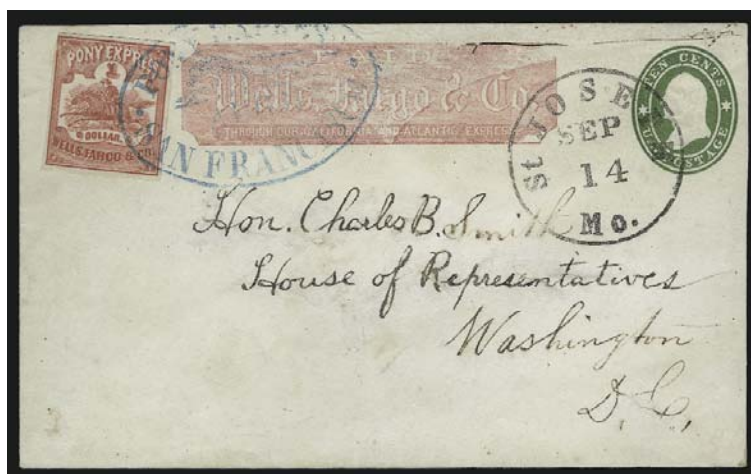 PONY EXPRESS
DOLLAR
WELLS, FARGO & Co
PAID
Wells, Fargo & Co.
THROUGH OUR CALIFORNIA AND ATLANTIC EXPRESS
SAN FRANCISCO
St JOSEPH
SEP
14
Mo.
TEN CENTS
U.S. POSTAGE
Hon. Charles B. Smith
House of Representatives
Washington
D.C.,